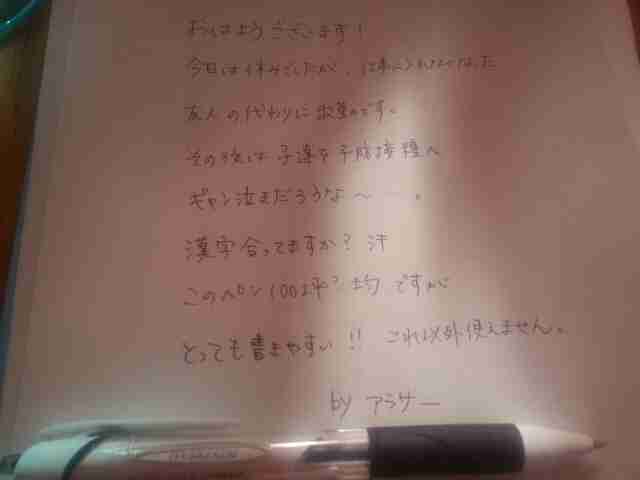 おはようございます!
今日は休みでしたが、来れなくなった
友人の代わりに出勤です。
その後は子達を予防接種へ
ギャン泣きだろうな〜……。
漢字合ってますか?汗
このペン100坪?均ですが
とっても書きやすい!! これ以外使えません。
by アラサー